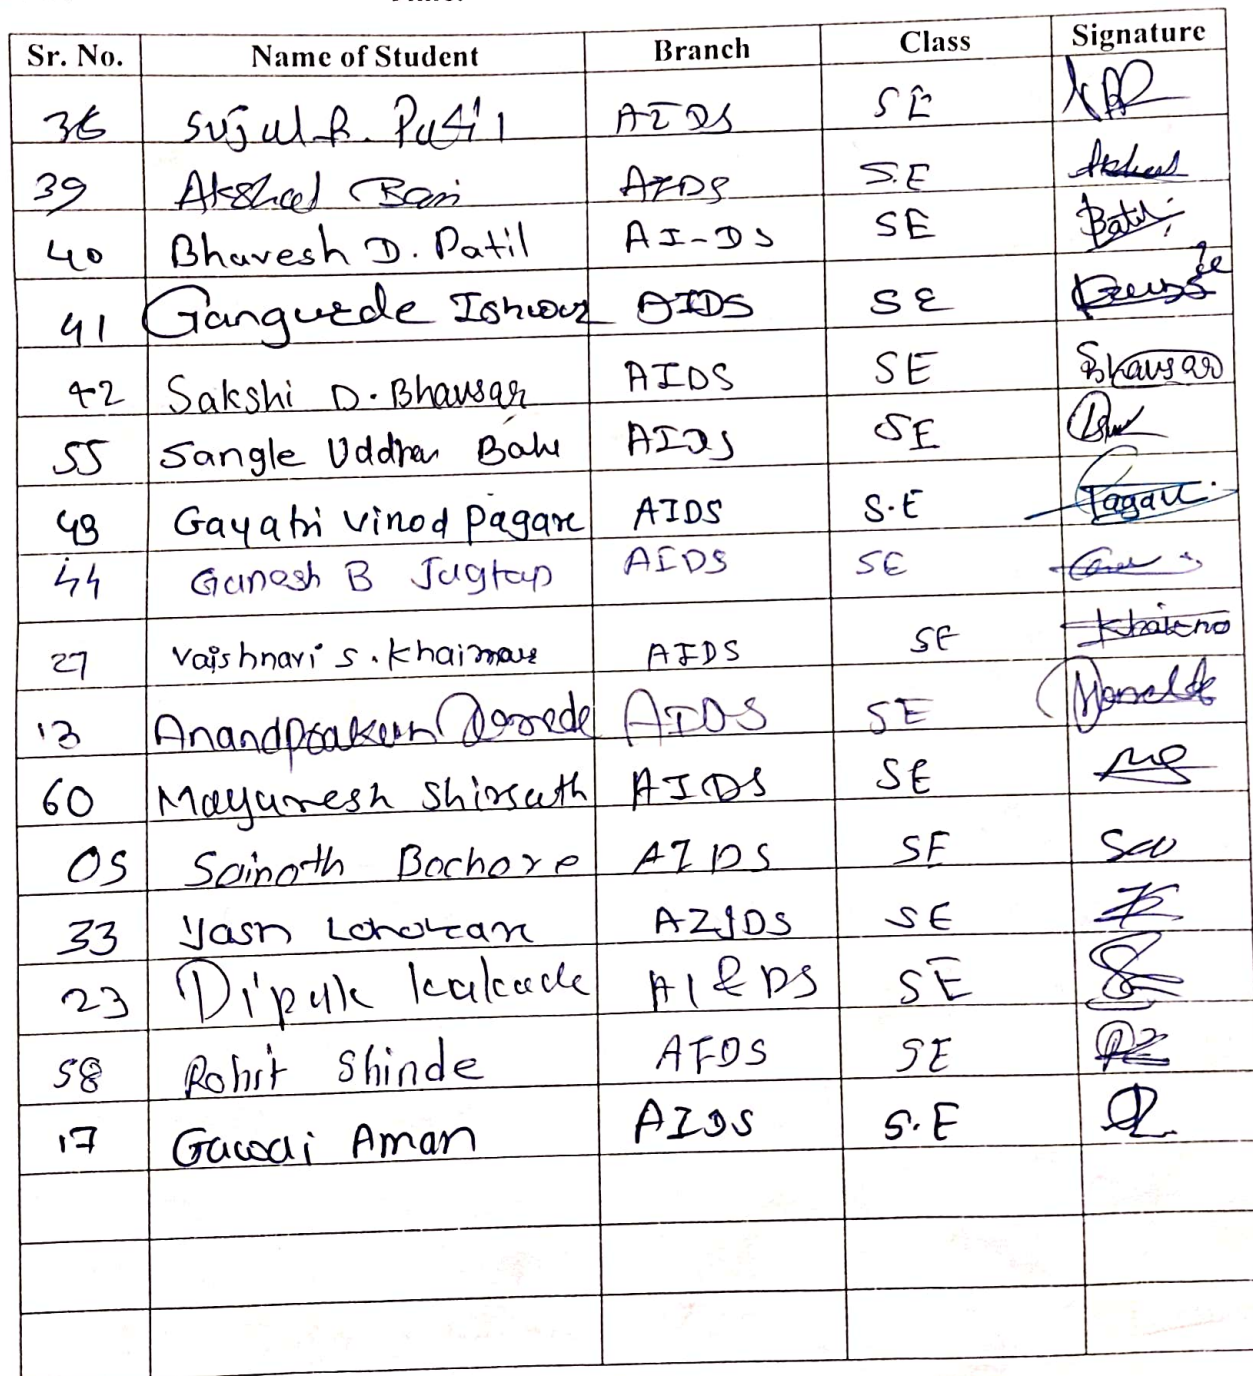 Sr. No. Name of Student Branch Class Signature
36 Sujal R. Patil AIDS SE
39 Akshad Bari AIDS S.E
40 Bhavesh D. Patil AI-DS SE Patil
41 Gangurde Ishwar AIDS SE
42 Sakshi D. Bhavsar AIDS SE Bhavsar
55 Sangle Uddhav AIDS SE
43 Gayatri Vinod Pagare AIDS S.E Pagare
44 Ganesh B Jagtap AIDS SE
27 Vaishnavi S. Khairnar AIDS SE
13 AIDS SE
60 Mayuresh Shirsath AIDS SE
05 Sainath Bochore AIDS SE
33 Yash AIDS SE
23 Dipak kakade AI & DS SE
58 Rohit Shinde AIDS SE
17 Gawai Aman AIDS S.E